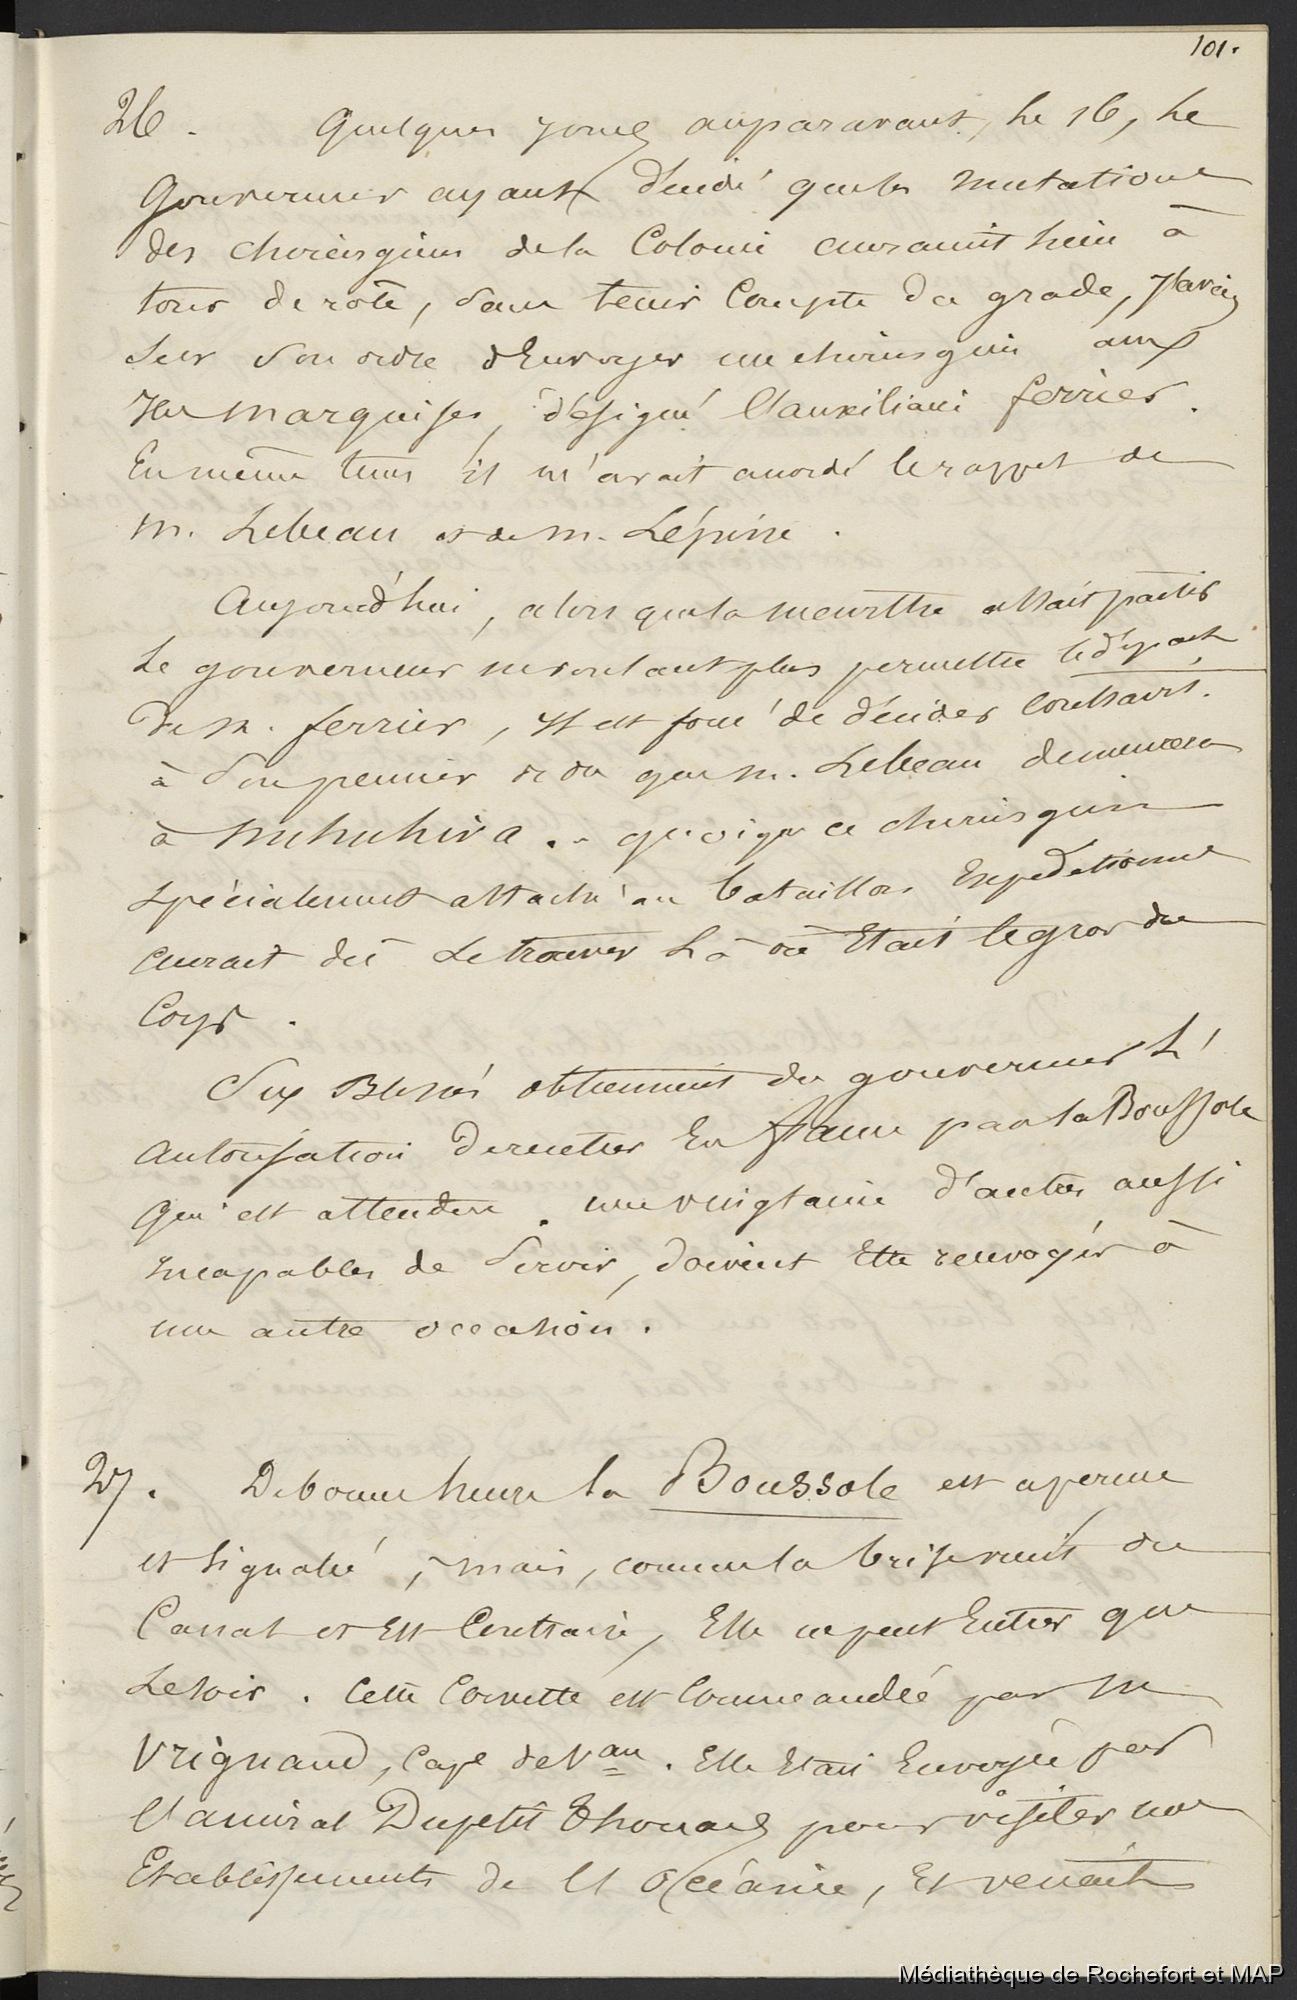 101.
26. Quelques jours auparavant, le 16, le
Gouverneur ayant décidé que les mutations
des chirurgiens de la Colonie auraient lieu à
tour de rôle, sans tenir Compte du grade, J'avais
sur son ordre d'Envoyer un chirurgien aux
Iles marquises, désigné l'auxiliaire ferrier.
En même tems il m'avait accordé le rappel de
M. Lebeau et de M. Lépine.
Aujourd'hui, alors que la meurthe allait partir
Le gouverneur ne voulant plus permettre le départ
de M. ferrier, Il est forcé de décider contrairt.
à Son premier ordre que M. Lebeau demeurera
à Nuhuhiva .. quoique ce chirurgien
spécialement attaché au bataillon Expéditionne
aurait dû se trouver Là où Etait le gros du
Corps.
Six Blessés obtiennent du gouverneur L'
autorisation de rentrer En france par la Boussole
qui est attendue. une vingtaine d'autres aussi
Incapables de Servir, doivent Etre renvoyés à
une autre occasion.
27. De bonne heure la Boussole est aperçue
et signalée, mais, comme la brise vient du
Canal et Est Contraire, Elle ne peut Entrer que
Le soir. Cette Corvette est Commandée par M
Vrignaud, Cape de Vau. Elle Etait Envoyée par
l'amiral Dupetit Thouars pour visiter nos
Etablissements de l'Océanie, Et venait
Médiathèque de Rochefort et MAP